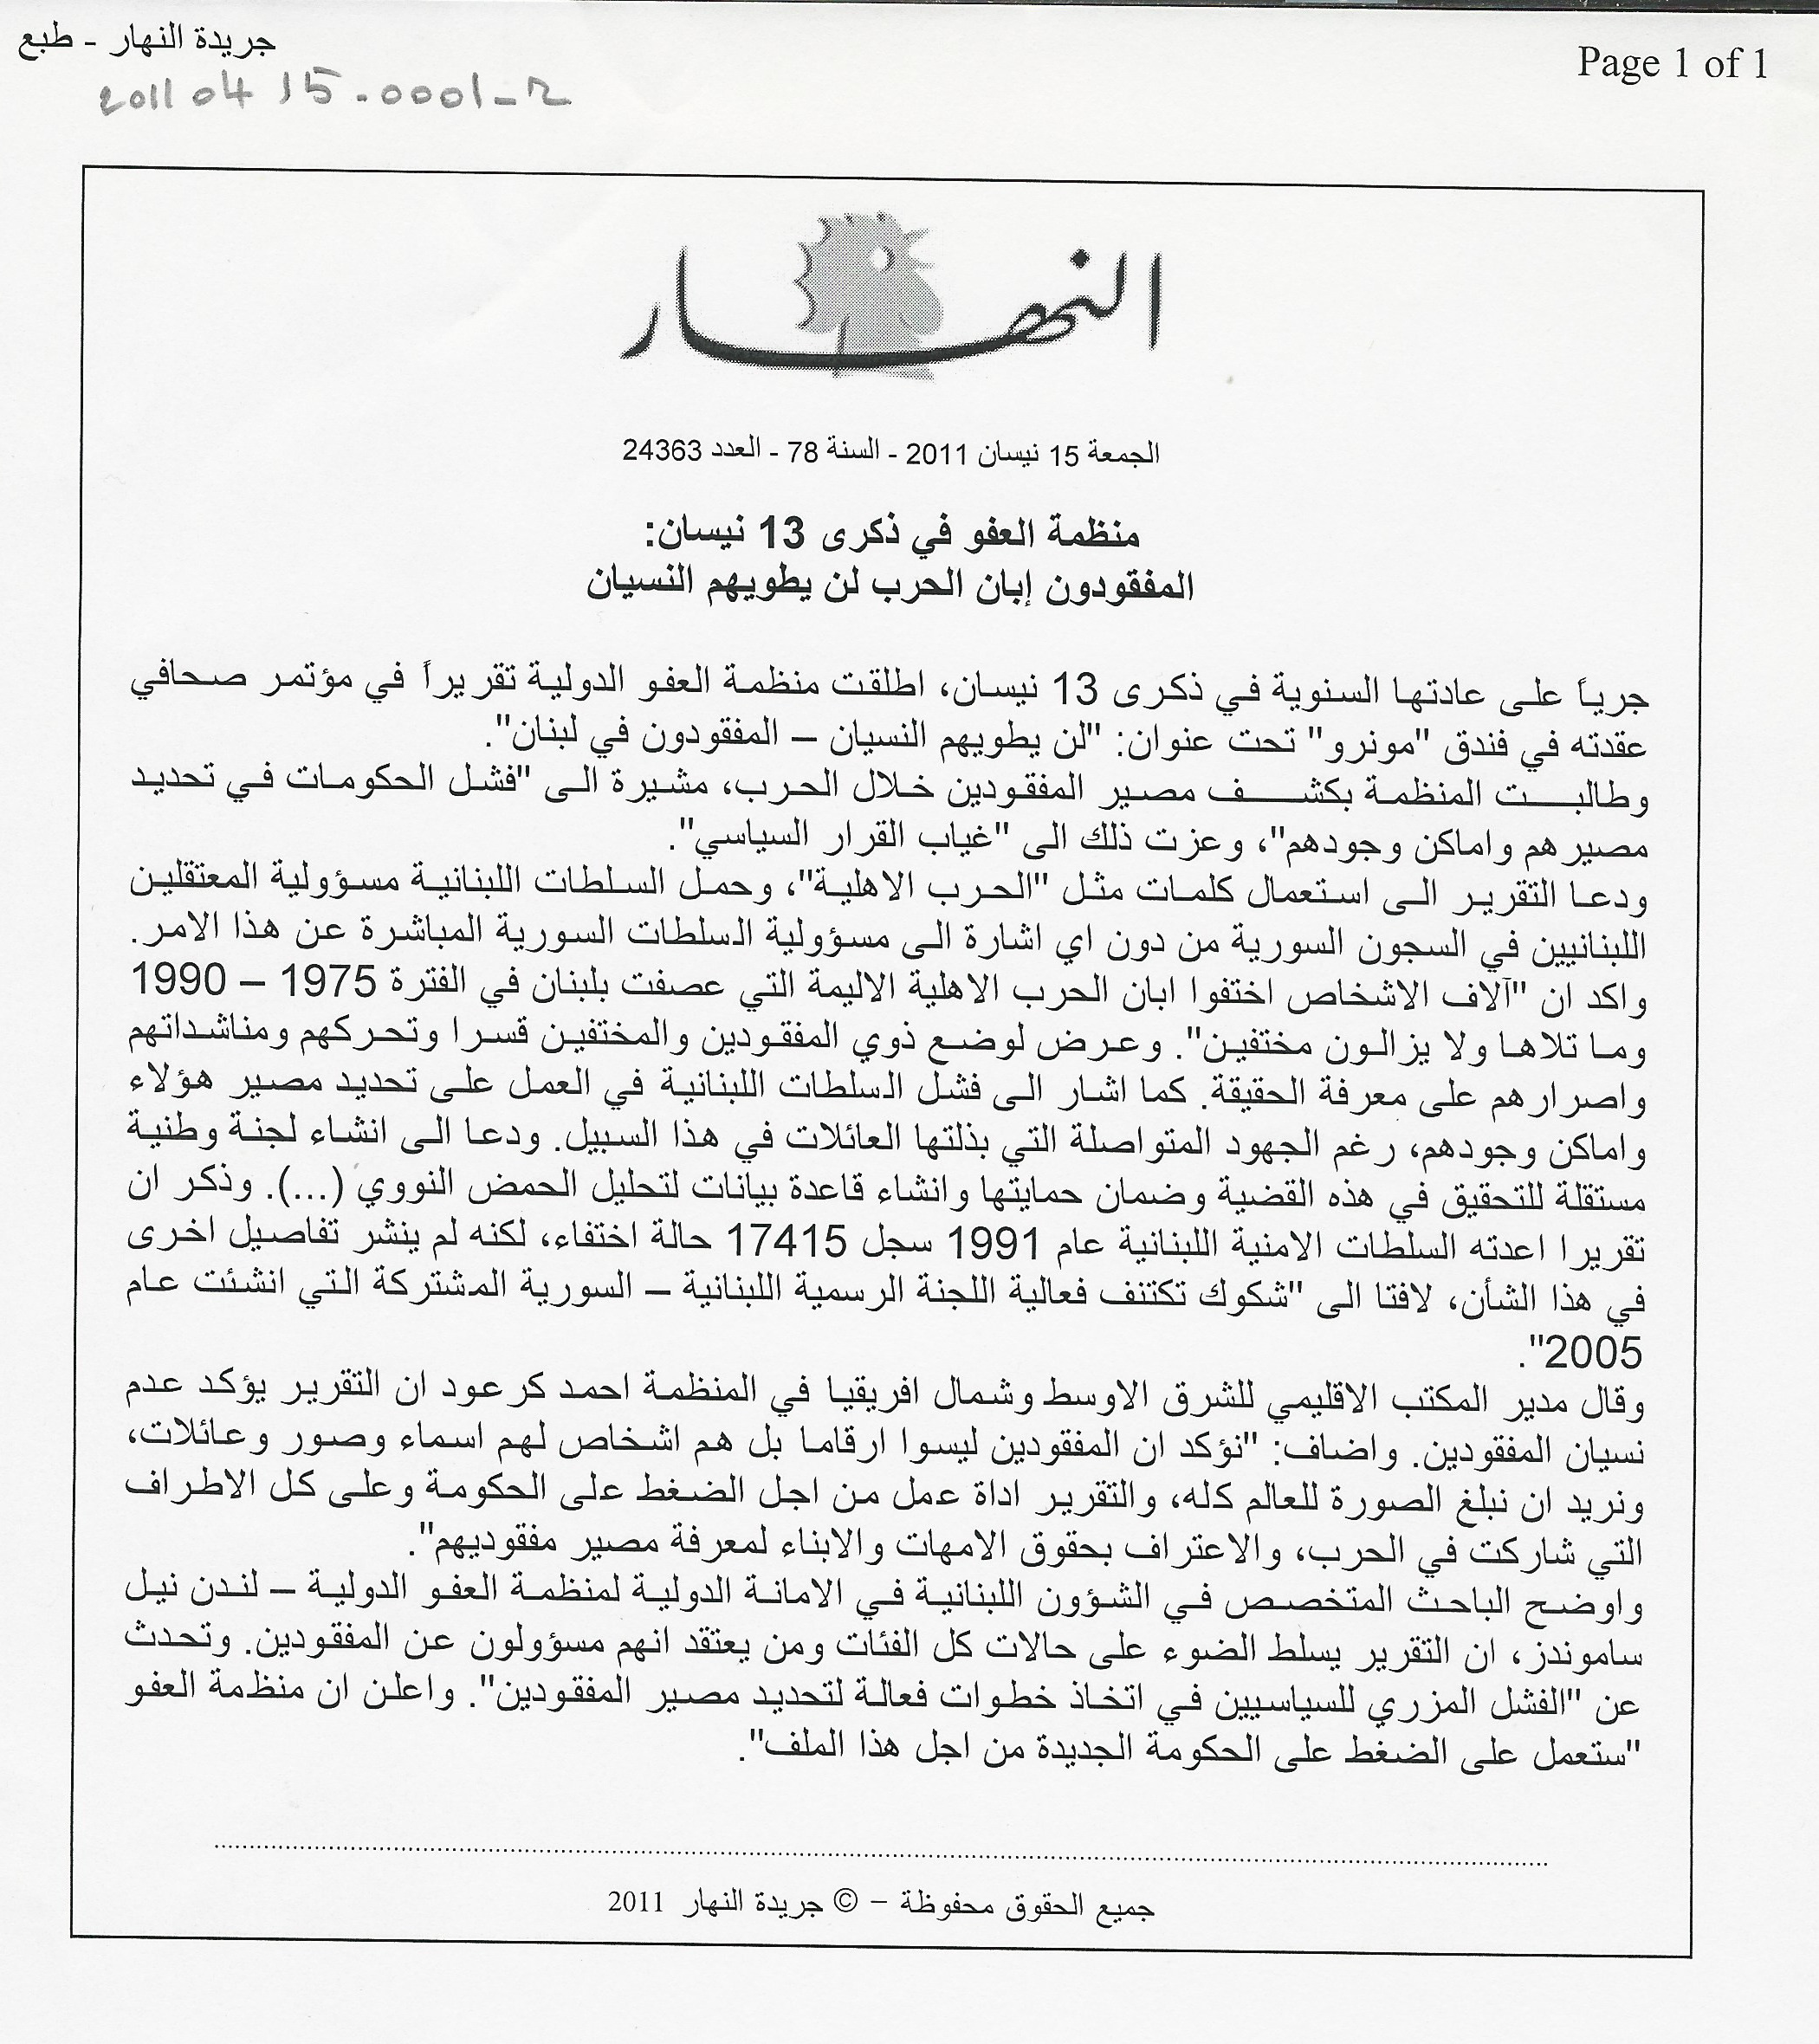 جريدة النهار - طبع
Page 1 of 1
20110415.0001-2
النهار
الجمعة 15 نيسان 2011 - السنة 78 - العدد 24363
منظمة العفو في ذكرى 13 نيسان:
المفقودون إبان الحرب لن يطويهم النسيان
جرياً على عادتها السنوية في ذكرى 13 نيسان، اطلقت منظمة العفو الدولية تقريراً في مؤتمر صحافي
عقدته في فندق "مونرو" تحت عنوان: "لن يطويهم النسيان – المفقودون في لبنان".
وطالبت المنظمة بكشف مصير المفقودين خلال الحرب، مشيرة الى "فشل الحكومات في تحديد
مصيرهم واماكن وجودهم"، وعزت ذلك الى "غياب القرار السياسي".
ودعا التقرير الى استعمال كلمات مثل "الحرب الاهلية"، وحمل السلطات اللبنانية مسؤولية المعتقلين
اللبنانيين في السجون السورية من دون اي اشارة الى مسؤولية السلطات السورية المباشرة عن هذا الامر.
واكد ان "آلاف الاشخاص اختفوا ابان الحرب الاهلية الاليمة التي عصفت بلبنان في الفترة 1975 – 1990
وما تلاها ولا يزالون مختفين". وعرض لوضع ذوي المفقودين والمختفين قسرا وتحركهم ومناشداتهم
واصرارهم على معرفة الحقيقة. كما اشار الى فشل السلطات اللبنانية في العمل على تحديد مصير هؤلاء
واماكن وجودهم، رغم الجهود المتواصلة التي بذلتها العائلات في هذا السبيل. ودعا الى انشاء لجنة وطنية
مستقلة للتحقيق في هذه القضية وضمان حمايتها وانشاء قاعدة بيانات لتحليل الحمض النووي (...). وذكر ان
تقريرا اعدته السلطات الامنية اللبنانية عام 1991 سجل 17415 حالة اختفاء، لكنه لم ينشر تفاصيل اخرى
في هذا الشأن، لافتا الى "شكوك تكتنف فعالية اللجنة الرسمية اللبنانية – السورية المشتركة التي انشئت عام
2005".
وقال مدير المكتب الاقليمي للشرق الاوسط وشمال افريقيا في المنظمة احمد كرعود ان التقرير يؤكد عدم
نسيان المفقودين. واضاف: "نؤكد ان المفقودين ليسوا ارقاما بل هم اشخاص لهم اسماء وصور وعائلات،
ونريد ان نبلغ الصورة للعالم كله، والتقرير اداة عمل من اجل الضغط على الحكومة وعلى كل الاطراف
التي شاركت في الحرب، والاعتراف بحقوق الامهات والابناء لمعرفة مصير مفقوديهم".
واوضح الباحث المتخصص في الشؤون اللبنانية في الامانة الدولية لمنظمة العفو الدولية – لندن نيل
ساموندز، ان التقرير يسلط الضوء على حالات كل الفئات ومن يعتقد انهم مسؤولون عن المفقودين. وتحدث
عن "الفشل المزري للسياسيين في اتخاذ خطوات فعالة لتحديد مصير المفقودين". واعلن ان منظمة العفو
"ستعمل على الضغط على الحكومة الجديدة من اجل هذا الملف".
جميع الحقوق محفوظة – © جريدة النهار 2011